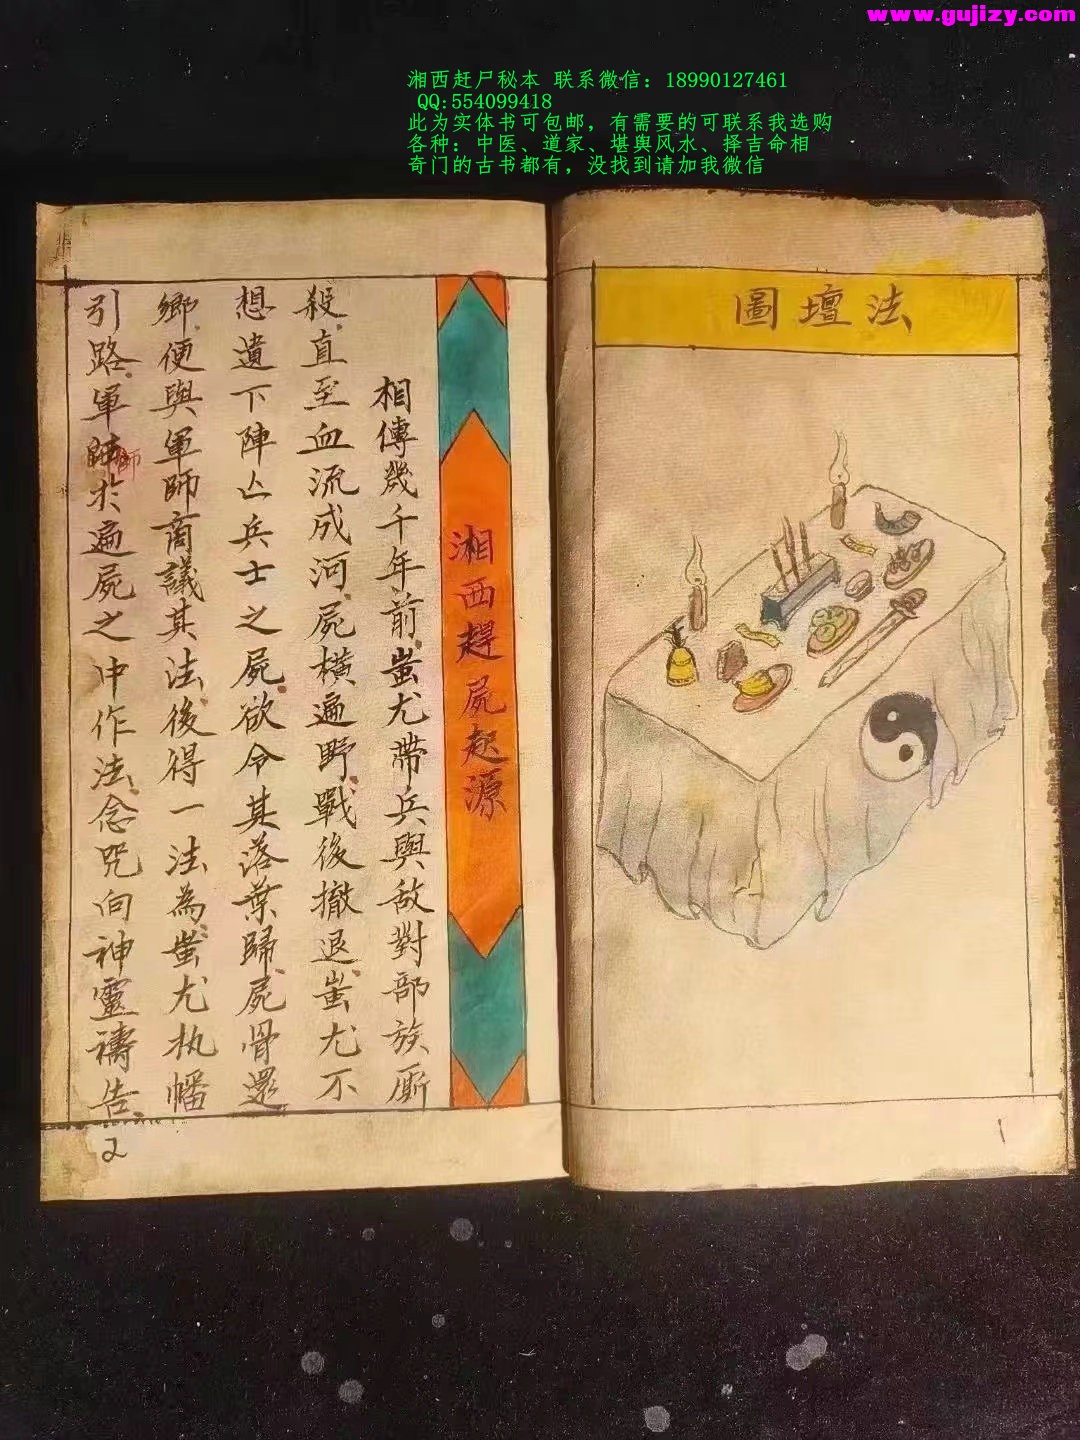 www.gujizy.com
湘西赶尸秘本 联系微信：18990127461
QQ:554099418
此为实体书可包邮，有需要的可联系我选购
各种：中医、道家、堪舆风水、择吉命相
奇门的古书都有，没找到请加我微信
圖壇法
1
湘西趕屍起源
相傳幾千年前蚩尤帶兵與敌對部族厮
殺直至血流成河屍橫遍野戰後撤退蚩尤不
想遺下陣亡兵士之屍欲令其落葉歸屍骨還
鄉便與軍師商議其法後得一法為蚩尤执幡
引路軍師於遍屍之中作法念咒向神靈禱告
師
2